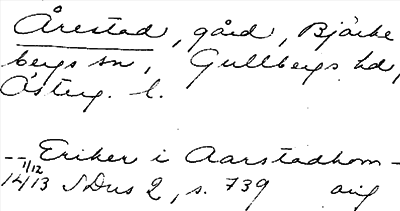 Årestad, gård, Bjärke
bergs sn, Gullbergs hd,
Österg. l.
-- Eriker i Aarstadhom -
1/12 1413 SDns 2, s. 739 orig